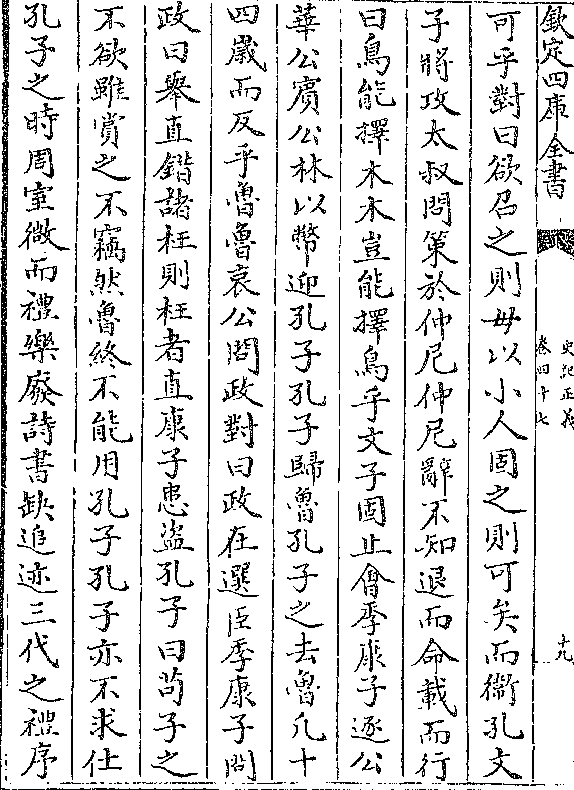 欽定四庫全書
史記正義
卷四十七
十九
可乎對曰欲召之則毋以小人固之則可矣而衞孔文
子將攻太叔問策於仲尼仲尼辭不知退而命載而行
曰鳥能擇木木豈能擇鳥乎文子固止㑹季康子逐公
華公賔公林以幣迎孔子孔子歸魯孔子之去魯凡十
四嵗而反乎魯魯哀公問政對曰政在選臣季康子問
政曰舉直錯諸枉則枉者直康子患盗孔子曰茍子之
不欲雖賞之不竊然魯終不能用孔子孔子亦不求仕
孔子之時周室微而禮樂廢詩書缺追迹三代之禮序